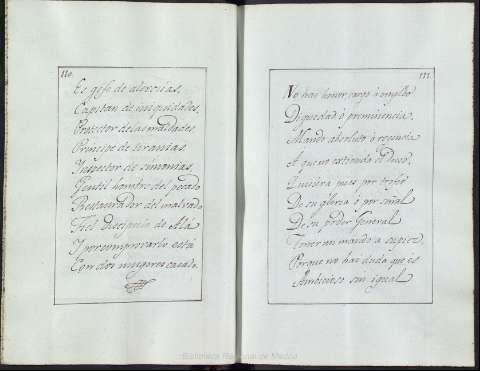 110.
Es gefe de alevosias,
Capitan de iniquidades,
Protector de las maldades,
Principe de tiranias,
Ynspector de simonias,
Gentil hombre del pecado,
Restaurador del malvado
Fiel discipulo de Alá
Y por comprovarlo está
Con dos mugeres casado.
111.
No hay honor, cargo ó empleo
Dignidad ó prominencia,
Mando absoluto ó
A que no extienda el deseo,
Quisiera pues por trofeo
De su gloria ó por señal
De su poder General
Tener un mando a
Porque no hay duda que es
Ambicioso sin igual
Biblioteca Regional de Madrid